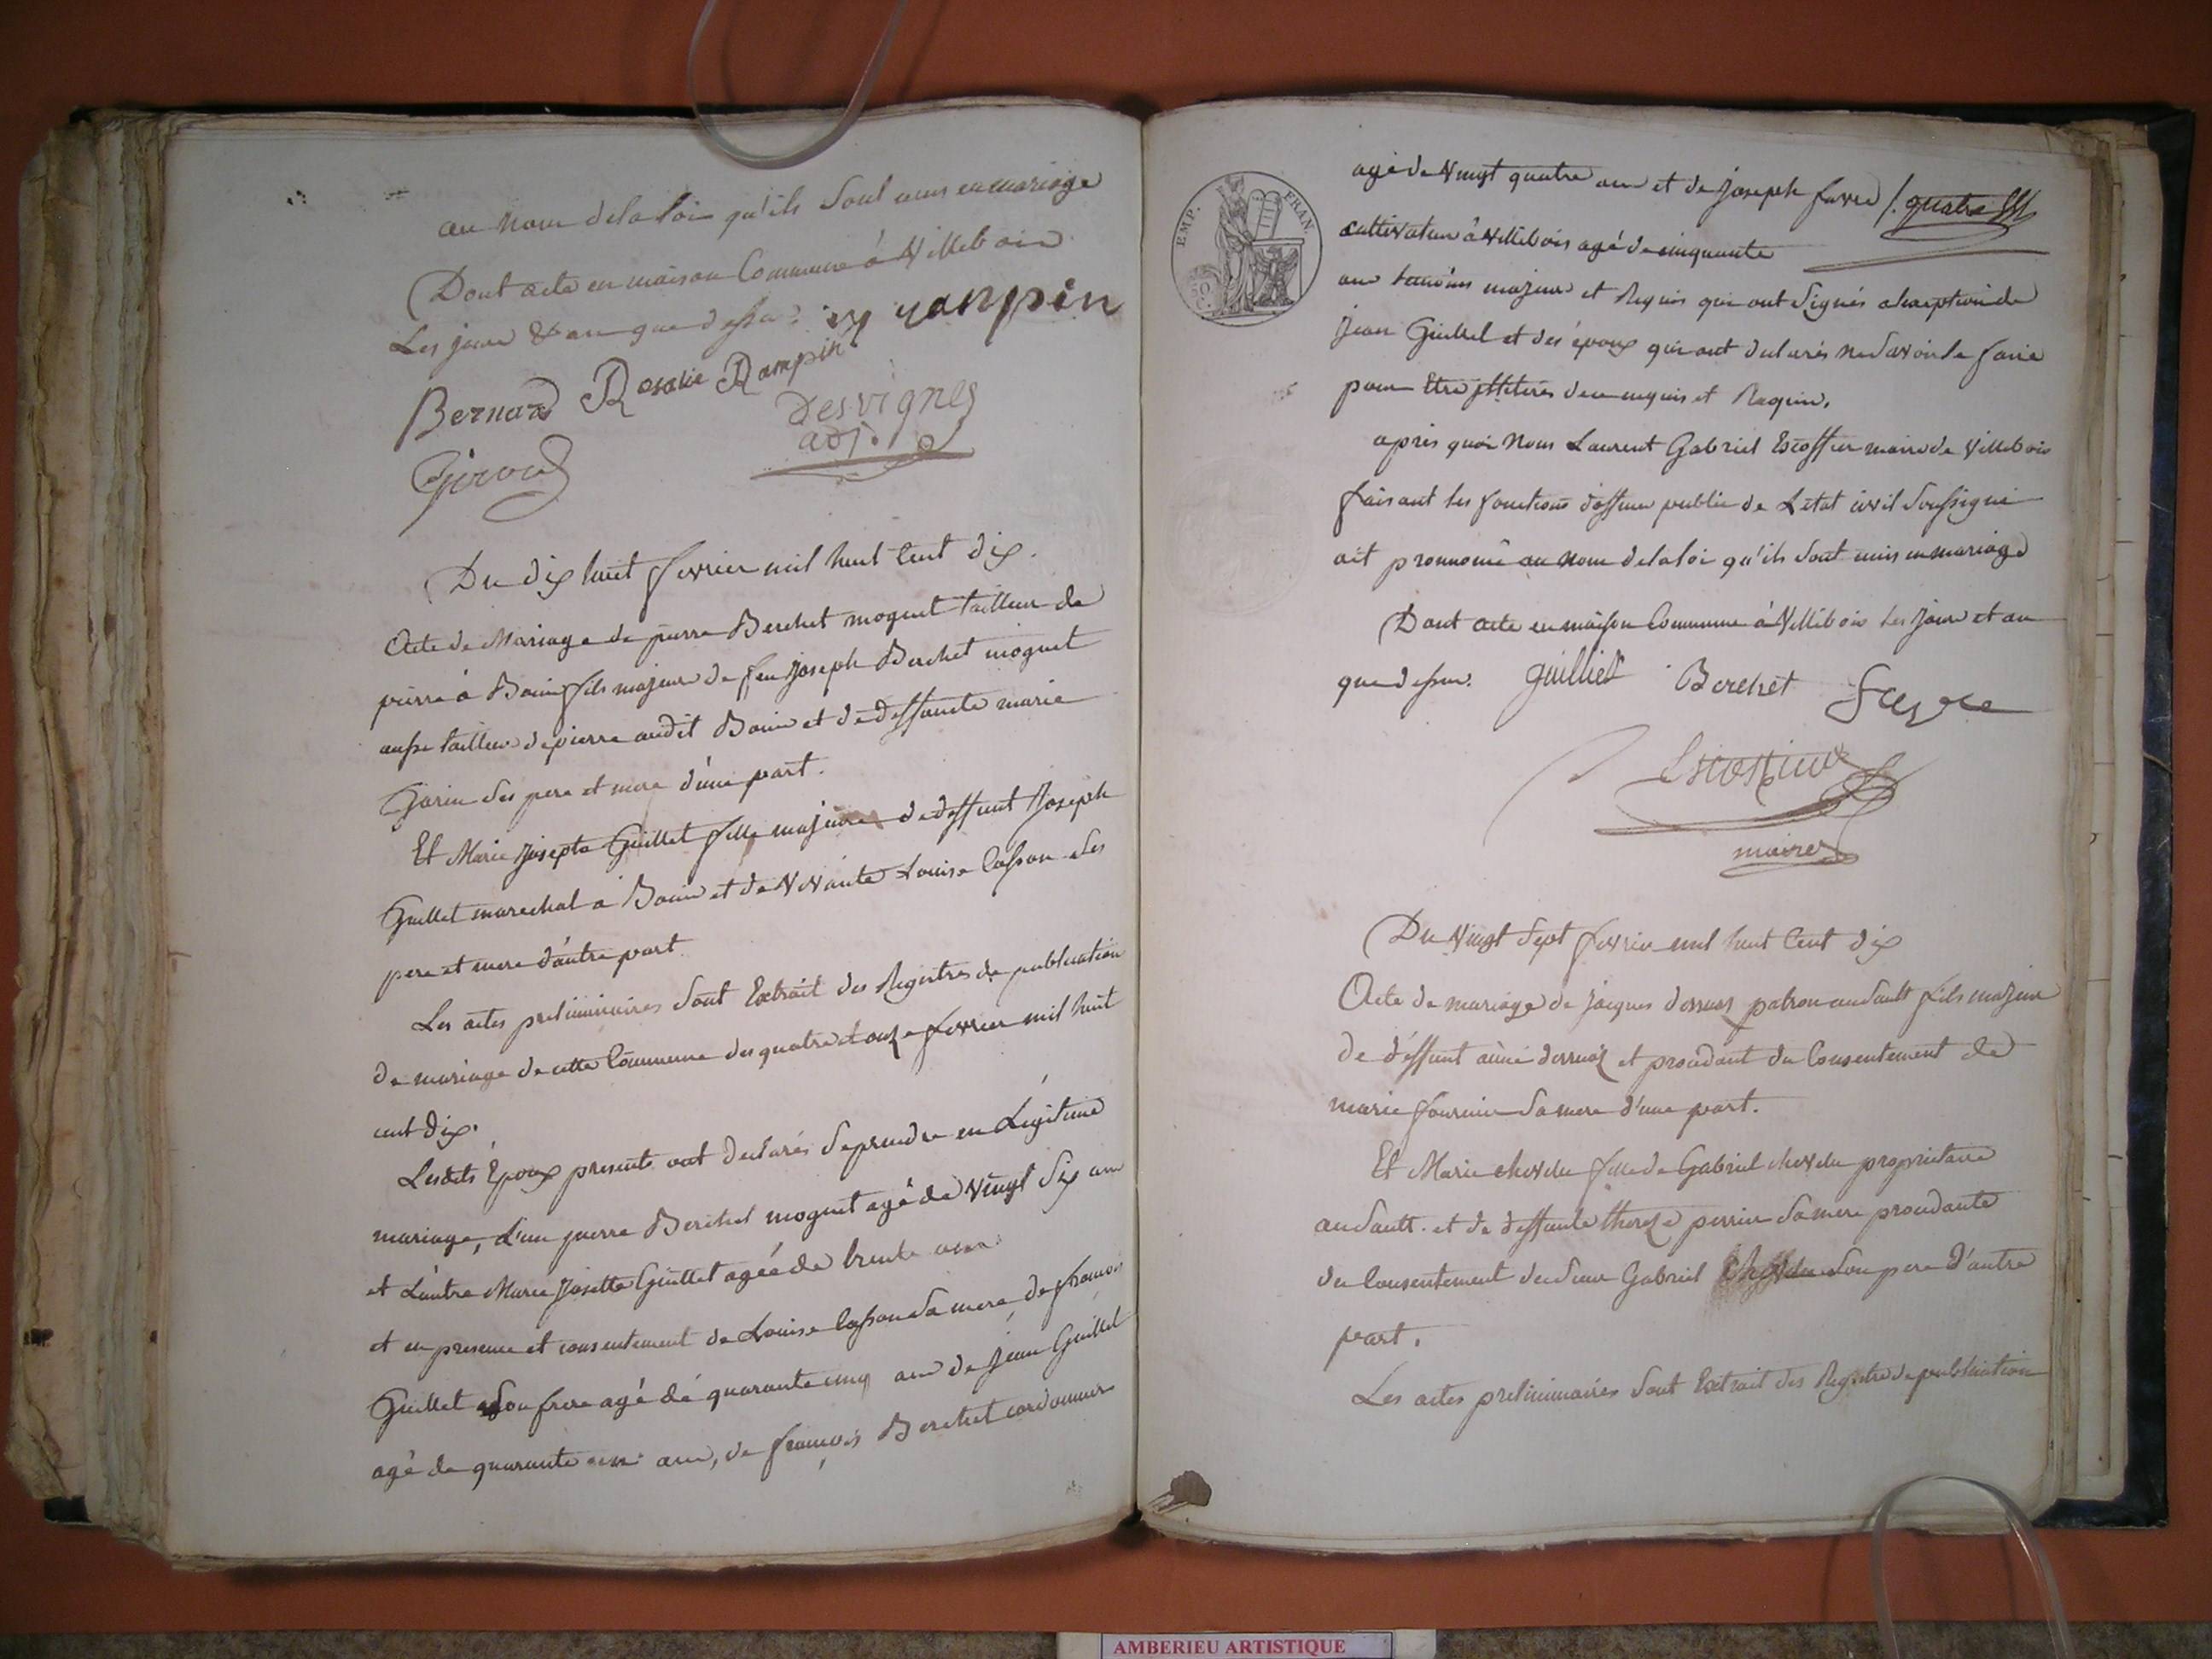 au nom de la loi qu'ils sont unis en mariage
Dont acte en maison Commune à Villebois
Les jour & an que dessus. rampin
Bernard Rosalie Rampin
Desvignes
adj.
Giroud
Du dix huit fevrier mil huit Cent dix.
Acte de Mariage de pierre Berchet moquet tailleur de
pierre à Bouis fils majeur de feu Joseph Berchet moquet
aussi tailleur de pierre audit Bouis et de deffuncte marie
Garin ses pere et mere d'une part.
Et Marie Josepte Guillet fille majeure de deffunt Joseph
Guillet marechal a Bouis et de Vivante Louise Casson ses
pere et mere d'autre part.
Les actes preliminaires sont Extrait des Registres de publication
de mariage de cette Commune des quatre et onze fevrier mil huit
cent dix.
Lesdits Epoux presents ont declarés se prendre en Légitime
mariage, L'un pierre Berchet moquet agé de vingt six ans
et L'autre Marie Josette Guillet agée de trente ans
et en presence et consentement de Louise Casson sa mere, de françois
Guillet son frere agé de quarante cinq ans de Jean Guillet
agé de quarante ans, de françois Berchet cordonnier
EMP. FRAN.
50 C.
agé de Vingt quatre ans et de Joseph favre /. quatre
cultivateur à Villebois agé de cinquante
ans temoins majeurs et Requis qui ont signés a l'exception de
Jean Guillet et des époux qui ont declarés ne savoir le faire
pour Etre illiterés de ce enquis et Requis.
après quoi Nous Laurent Gabriel Escoffier maire de Villebois
faisant les fonctions d'officier public de L'état civil soussigné
ait prononcé au nom de la loi qu'ils sont unis en mariage
Dont acte en maison Commune à Villebois les jour et an
que dessus. guilliet Berchet favre
Escoffier
maire
Du Vingt Sept fevrier mil huit Cent dix
Acte de mariage de Jacques derruaz patron au Sault fils majeur
de deffunt aimé derruaz et procedant du Consentement de
marie fournier sa mere d'une part.
Et Marie chevelu fille de Gabriel chevelu proprietaire
au Sault. et de deffunte thereze perrier sa mere procedante
du Consentement du sieur Gabriel Chevelu son pere d'autre
part.
Les actes preliminaires sont Extrait des Registre de publication
AMBERIEU ARTISTIQUE